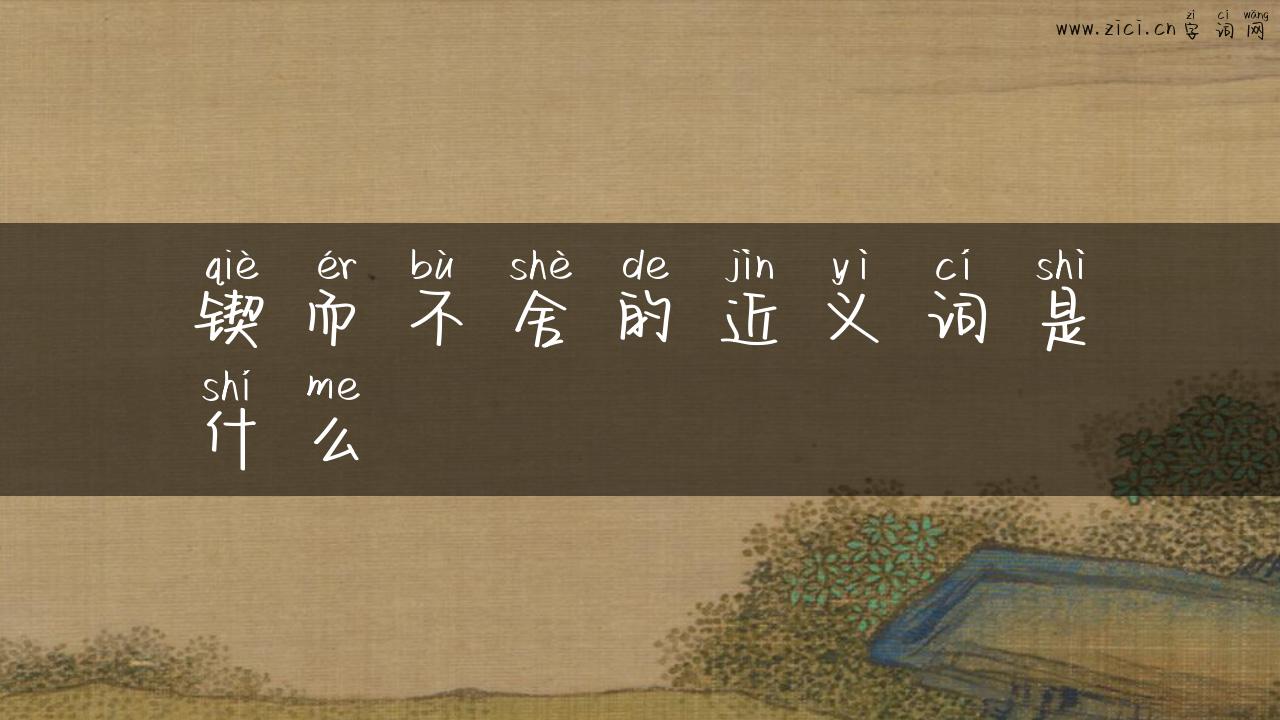 zì cí wǎng
www.zici.cn 字词网
qiè ér bù shě de jìn yì cí shì
锲而不舍的近义词是
shí me
什么